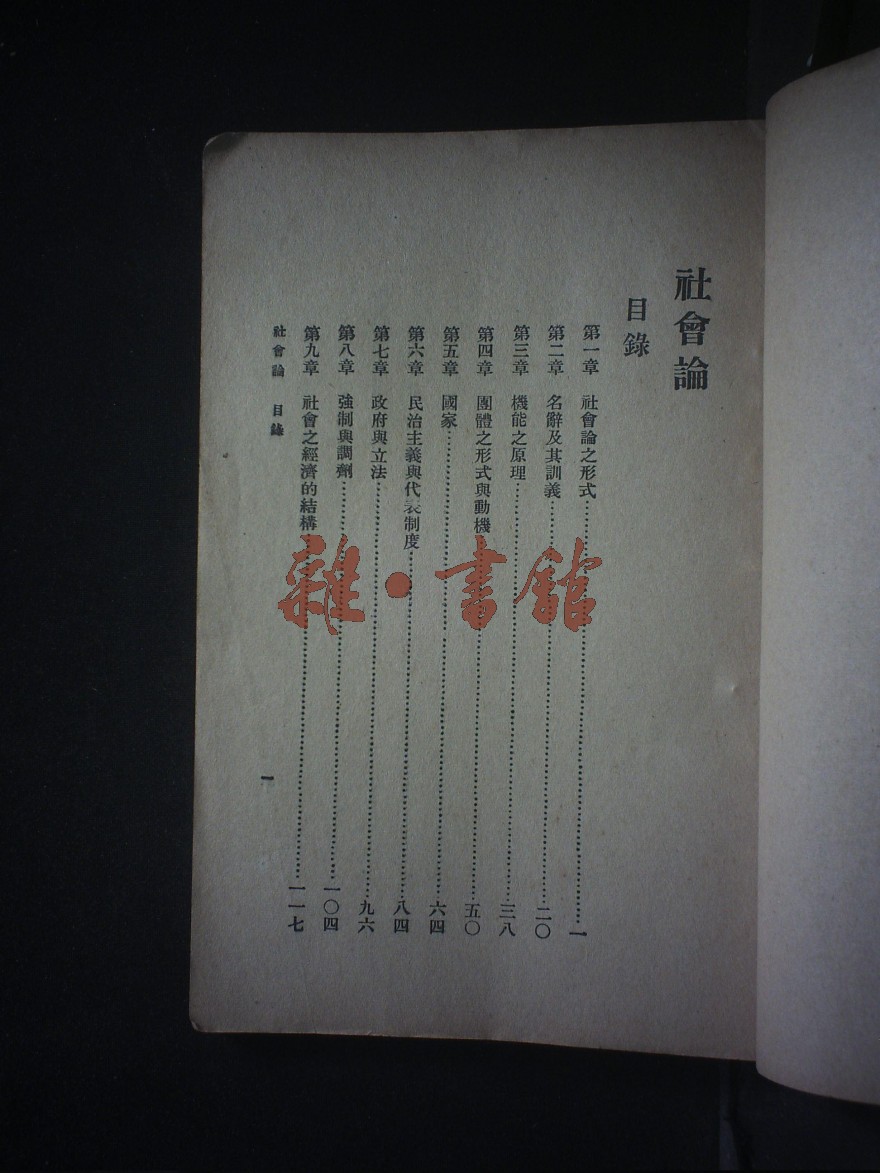 社會論
目錄
第一章 社會論之形式……一
第二章 名辭及其訓義……二〇
第三章 機能之原理……三八
第四章 團體之形式與動機……五〇
第五章 國家……六四
第六章 民治主義與代表制度……八四
第七章 政府與立法……九六
第八章 強制與調劑……一〇四
第九章 社會之經濟的結構……一一七
社會論 目錄
一
雜·書館